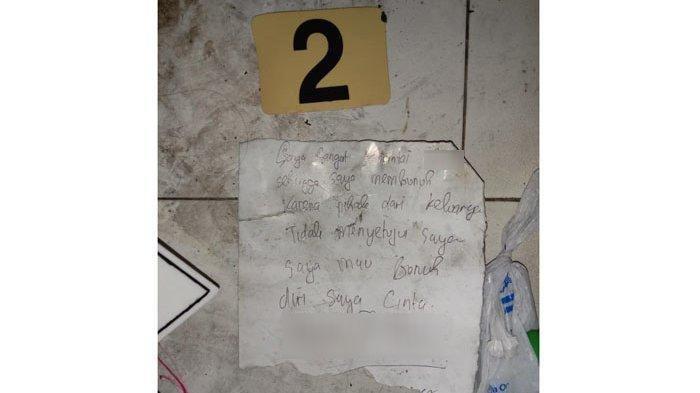 2
Saya Sangat
sehingga saya membunuh
Karena pihak dari keluarga
Tidak Menyetujui saya
saya mau Bunuh
diri saya Cinta.